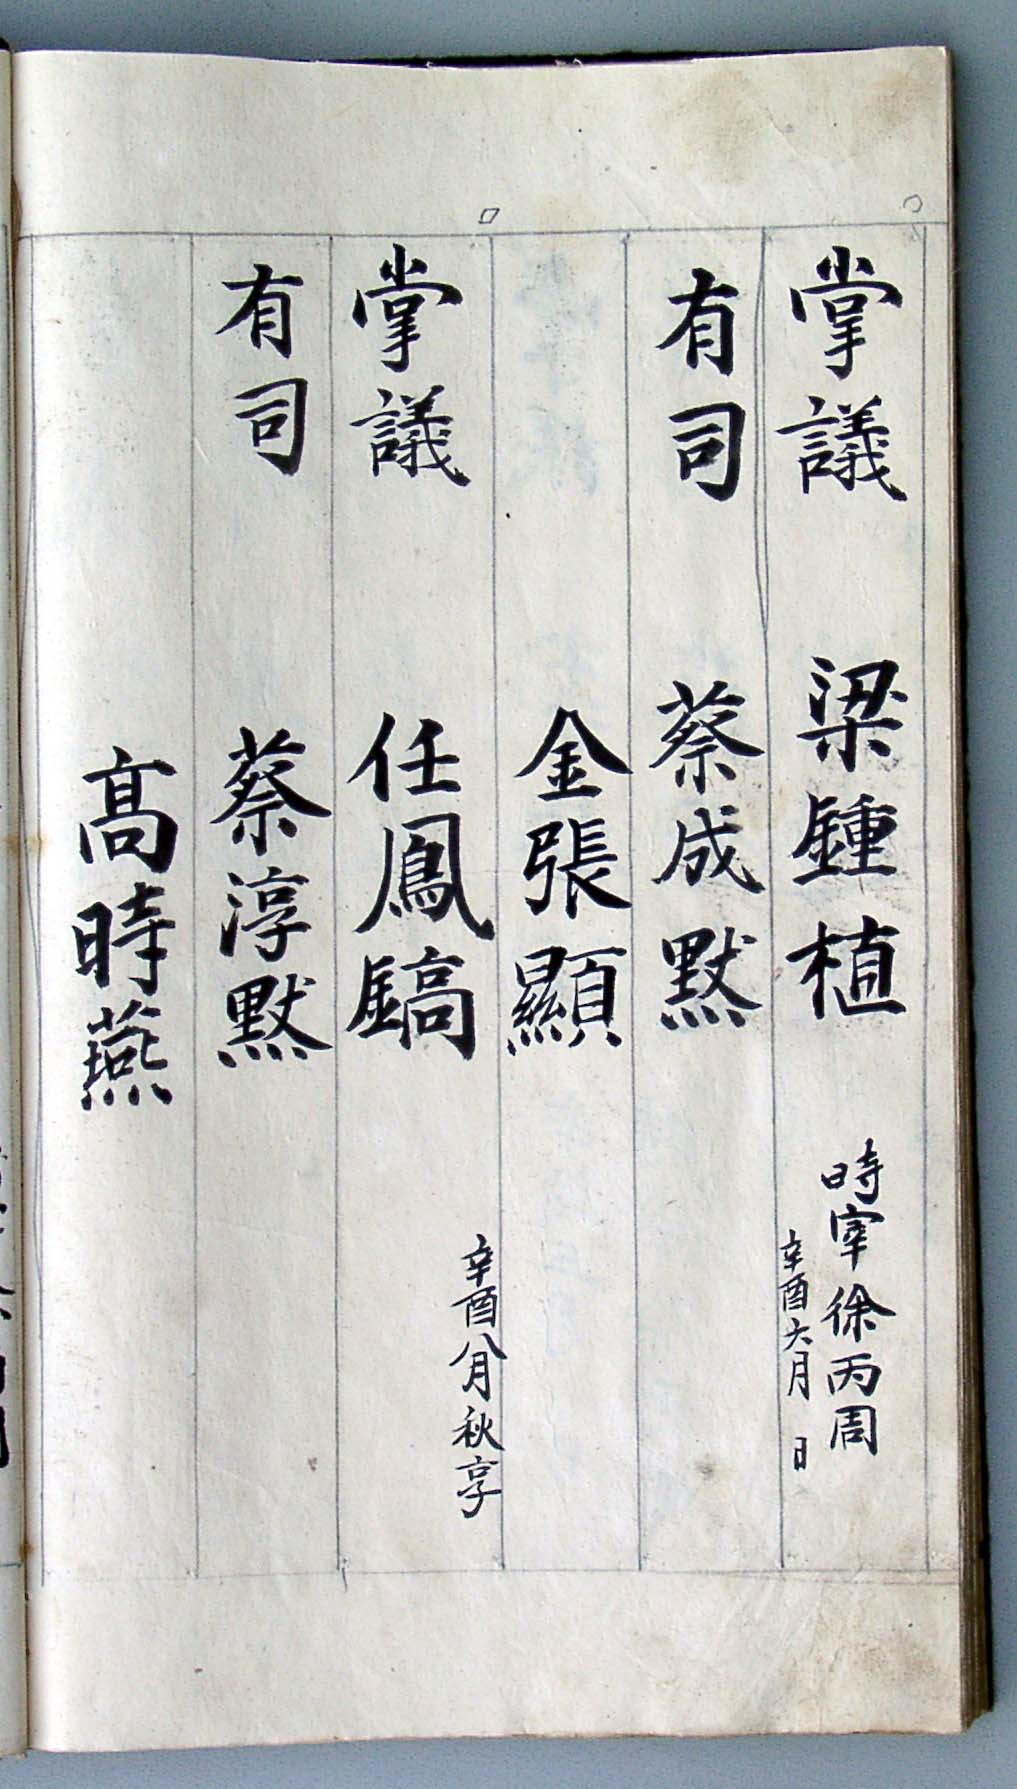 掌議 梁鍾植 時宰徐丙周
辛酉六月 日
有司 蔡成黙
金張顯
掌議 任鳳鎬 辛酉八月秋享
有司 蔡淳黙
高時燕